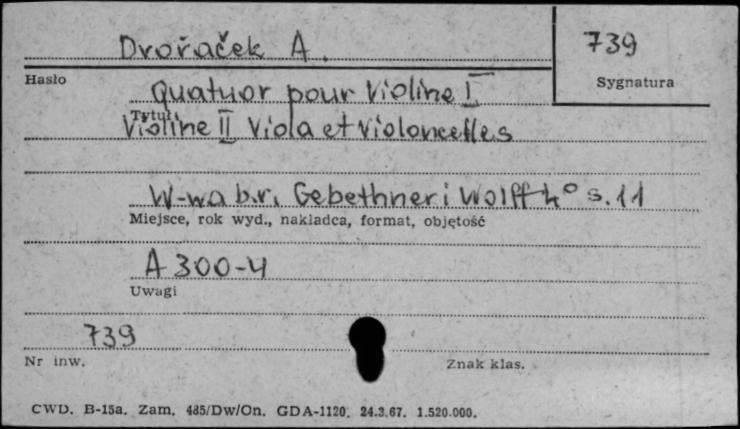 Dvořaček A.
739
Hasło
Sygnatura
Quatuor pour Violine I
Tytuł
Violine II Viola et violoncelles
W-wa b.r. Gebethner i Wolff 4° s. 11
Miejsce, rok wyd., nakładca, format, objętość
A 300-4
Uwagi
739
Nr inw.
Znak klas.
CWD. B-15a. Zam. 485/Dw/On. GDA-1120. 24.3.67. 1.520.000.